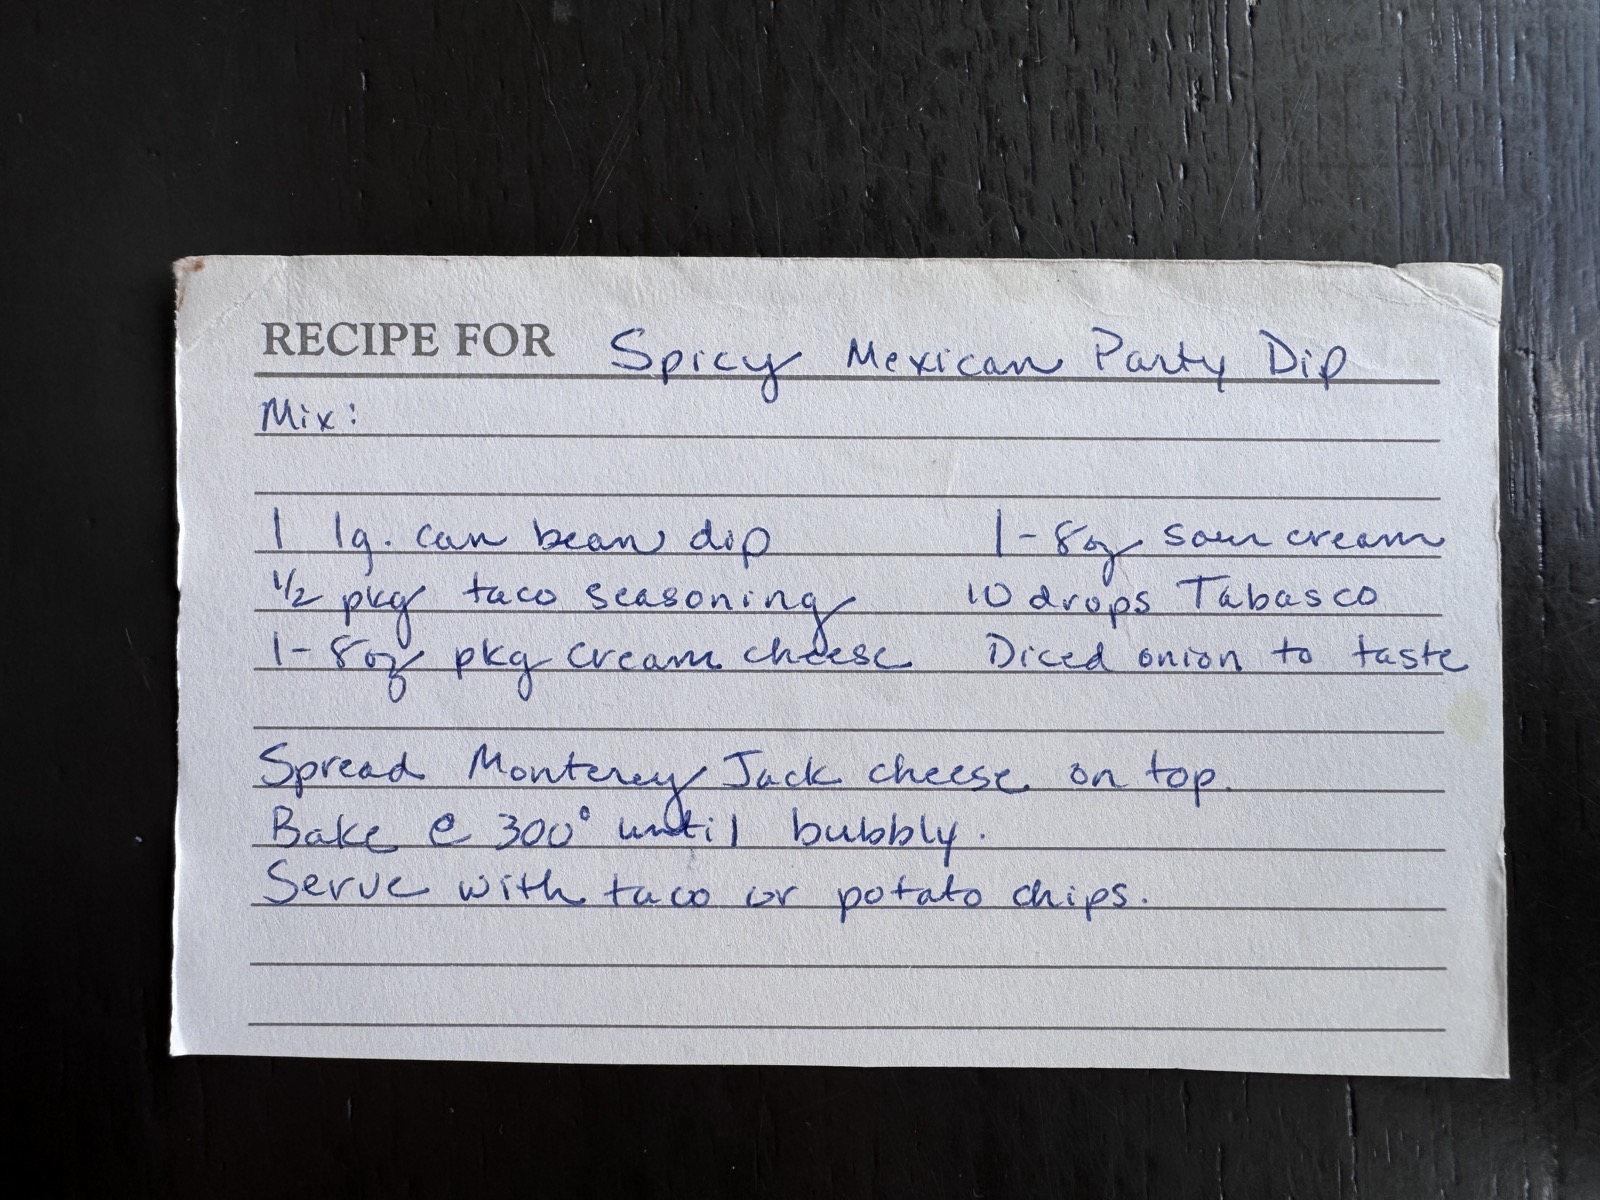 RECIPE FOR Spicy Mexican Party Dip
Mix:
1 lg. can bean dip 1-8oz sour cream
1/2 pkg taco seasoning 10 drops Tabasco
1-8oz pkg cream cheese Diced onion to taste
Spread Monterey Jack cheese on top.
Bake @ 300° until bubbly.
Serve with taco or potato chips.